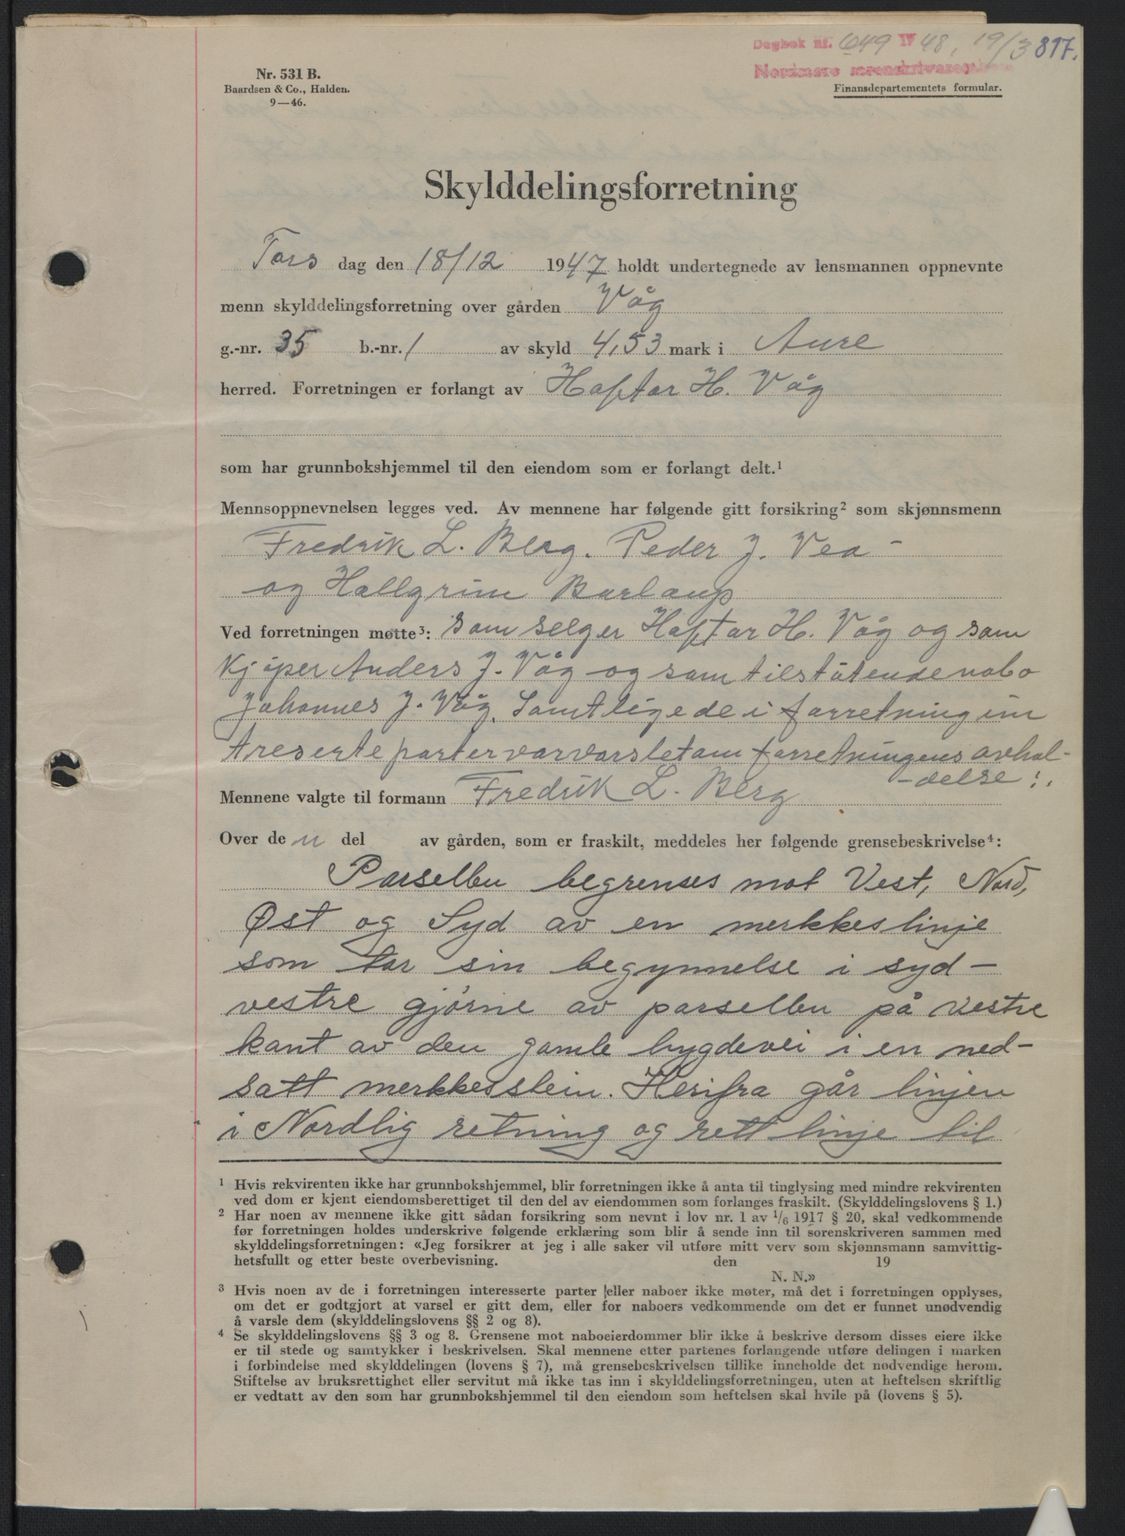 Dagbok nr. 649 1948, 19/3 817.
Nordmøre sorenskriverembete
Nr. 531 B.
Baardsen & Co., Halden.
9—46.
Finansdepartementets formular.
Skylddelingsforretning
Tors dag den 18/12 1947 holdt undertegnede av lensmannen oppnevnte
menn skylddelingsforretning over gården Våg
g.-nr. 35 b.-nr. 1 av skyld 4,53 mark i Aure
herred. Forretningen er forlangt av Haftor H. Våg
som har grunnbokshjemmel til den eiendom som er forlangt delt.¹
Mennsoppnevnelsen legges ved. Av mennene har følgende gitt forsikring² som skjønnsmenn
Fredrik L. Berg. Peder J. Vea -
og Hallgrim Barlaup
Ved forretningen møtte³: som selger Haftor H. Våg og som
kjøper Anders J. Våg og som tilstøtende nabo
Johannes J. Våg. Samtlige de i forretning in
treserte parter var varslet om forretningens avhol-
-delse:.
Mennene valgte til formann Fredrik L. Berg
Over den del av gården, som er fraskilt, meddeles her følgende grensebeskrivelse⁴:
Parsellen begrenses mot Vest, Nord,
Øst og Syd av en merkkeslinje
som tar sin begynnelse i syd-
vestre gjørne av parsellen på vestre
kant av den gamle bygdevei i en ned-
satt merkkesstein. Herifra går linjen
i Nordlig retning og rett linje til
¹ Hvis rekvirenten ikke har grunnbokshjemmel, blir forretningen ikke å anta til tinglysing med mindre rekvirenten
ved dom er kjent eiendomsberettiget til den del av eiendommen som forlanges fraskilt. (Skylddelingslovens § 1.)
² Har noen av mennene ikke gitt sådan forsikring som nevnt i lov nr. 1 av 1/6 1917 § 20, skal vedkommende
før forretningen holdes underskrive følgende erklæring som blir å sende inn til sorenskriveren sammen med
skylddelingsforretningen: «Jeg forsikrer at jeg i alle saker vil utføre mitt verv som skjønnsmann samvittig-
hetsfullt og etter beste overbevisning. den 19
N. N.»
³ Hvis noen av de i forretningen interesserte parter eller naboer ikke møter, må det i forretningen opplyses,
om det er godtgjort at varsel er gitt dem, eller for naboers vedkommende om det er funnet unødvendig
å varsle dem (skylddelingslovens §§ 2 og 8).
⁴ Se skylddelingslovens §§ 3 og 8. Grensene mot naboeierdommer blir ikke å beskrive dersom disses eiere ikke
er til stede og samtykker i beskrivelsen. Skal mennene etter partenes forlangende utføre delingen i marken
i forbindelse med skylddelingen (lovens § 7), må grensebeskrivelsen tillike inneholde det nødvendige herom.
Stiftelse av bruksrettighet eller servitut må ikke tas inn i skylddelingsforretningen, uten at heftelsen skriftlig
er vedtatt av den som har grunnbokshjemmel til den eiendom som heftelsen skal hvile på (lovens § 5).